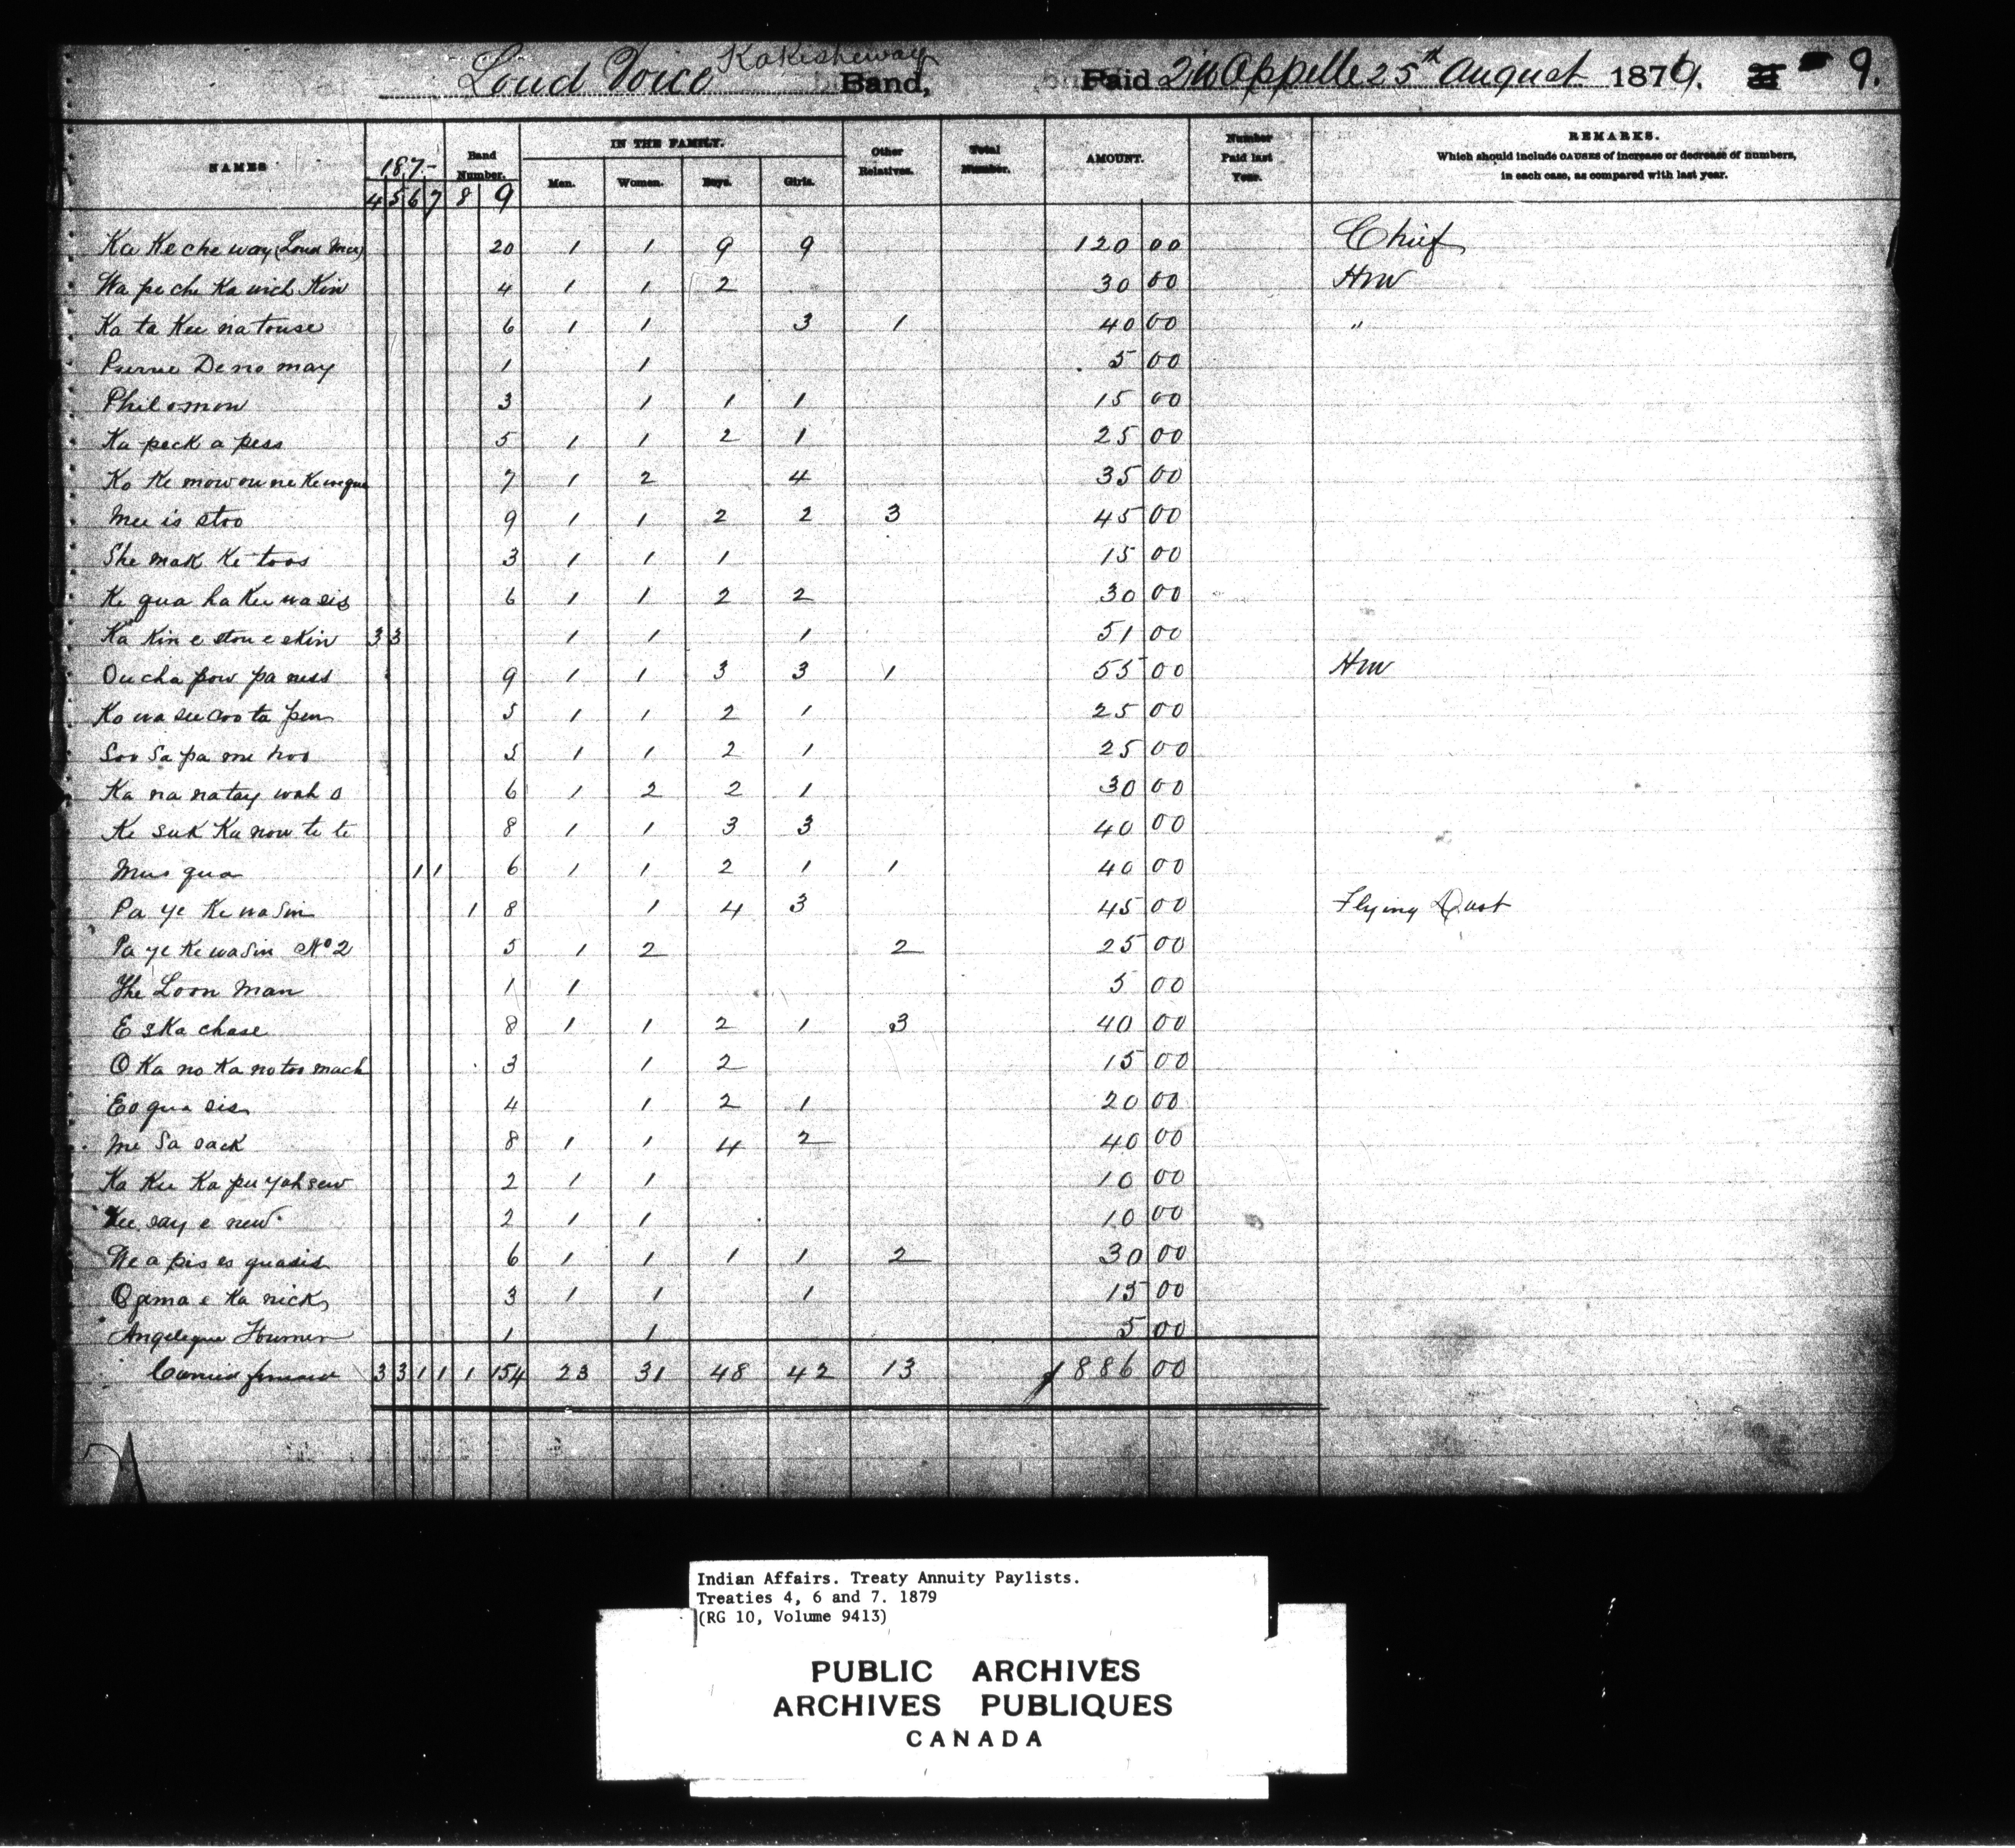 Kakisheway
Loud Voice Band, Paid Qu'Appelle 25th August 1879. 9.
NAMES 187- Band Number. IN THE FAMILY. Other Relatives. Total Number. AMOUNT. Number Paid last Year. REMARKS.
Which should include CAUSES of increase or decrease of numbers,
in each case, as compared with last year.
4 5 6 7 8 9 Men. Women. Boys. Girls.
Ka Ke che way (Loud 20 1 1 9 9 120 00 Chief
Wa pe che Ka wich Kin 4 1 1 2 30 00 Hm
Ka ta Kee na touse 6 1 1 3 1 40 00 "
Deno may 1 1 5 00
Philomon 3 1 1 1 15 00
Ka peck a pess 5 1 1 2 1 25 00
Ko Ke mow ou ne Ke wequa 7 1 2 4 35 00
Mee is stoo 9 1 1 2 2 3 45 00
She mak Ke toos 3 1 1 1 15 00
Ke qua ha Kee wasis 6 1 1 2 2 30 00
Ka Kin e stou e skin 3 3 1 1 1 51 00
Ou cha pow pa ness 9 1 1 3 3 1 55 00 Hm
Ko wa see coo ta pew 5 1 1 2 1 25 00
Soo Sa pa me hoo 5 1 1 2 1 25 00
Ka na natay wah o 6 1 2 2 1 30 00
Ke suk Ka now te te 8 1 1 3 3 40 00
Mus qua 1 1 6 1 1 2 1 1 40 00
Pa ye Ke wa Sin 1 8 1 4 3 45 00 Flying Dust
Pa ye Ke wa Sin No 2 5 1 2 2 25 00
The Loon Man 1 1 5 00
E ska chase 8 1 1 2 1 3 40 00
O Ka no Ka no too mach 3 1 2 15 00
Es qua sis 4 1 2 1 20 00
Me Sa sack 8 1 1 4 2 40 00
Ka Kee Ka pee yah sew 2 1 1 10 00
Kee say e new 2 1 1 10 00
We a pis es quasis 6 1 1 1 1 2 30 00
Ogema e Ka nick 3 1 1 1 15 00
Angelique 1 1 5 00
Carried forward 3 3 1 1 1 154 23 31 48 42 13 $886 00
Indian Affairs. Treaty Annuity Paylists.
Treaties 4, 6 and 7. 1879
(RG 10, Volume 9413)
PUBLIC ARCHIVES
ARCHIVES PUBLIQUES
CANADA